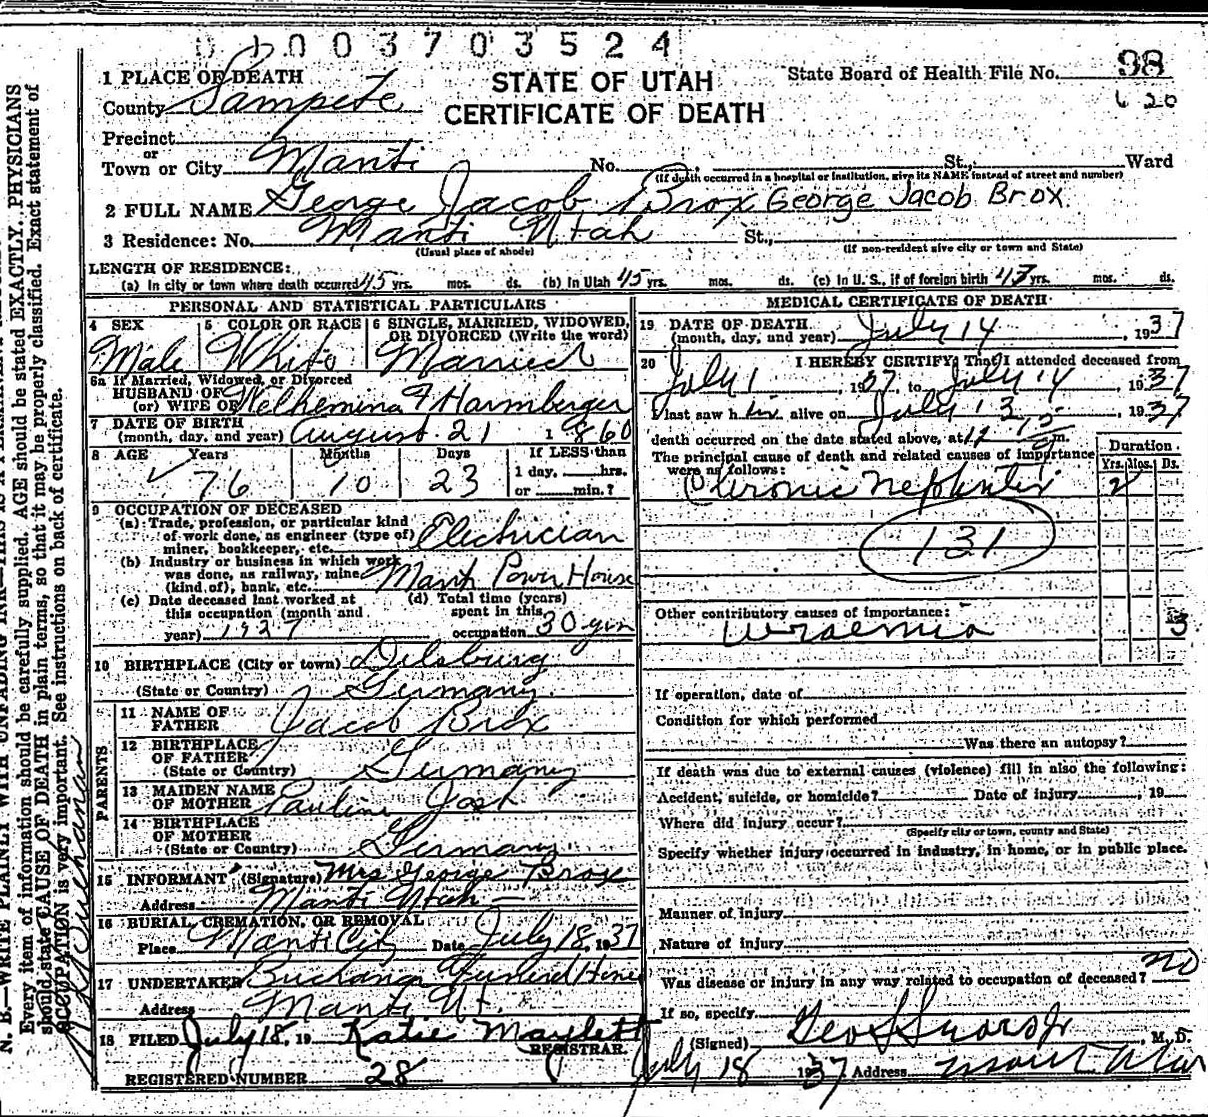 0 0 3 7 0 3 5 2 4
98
1 PLACE OF DEATH
STATE OF UTAH
State Board of Health File No.
County Sampete
CERTIFICATE OF DEATH
6 20
Precinct
or
Town or City Manti No. St., Ward
(If death occurred in a hospital or institution, give its NAME instead of street and number)
2 FULL NAME George Jacob Brox George Jacob Brox.
3 Residence: No. Manti Utah St.,
(Usual place of abode) (If non-resident give city or town and State)
LENGTH OF RESIDENCE:
(a) In city or town where death occurred 45 yrs. mos. ds. (b) In Utah 45 yrs. mos. ds. (c) In U. S., if of foreign birth 47 yrs. mos. ds.
PERSONAL AND STATISTICAL PARTICULARS
4 SEX 5 COLOR OR RACE 6 SINGLE, MARRIED, WIDOWED, OR DIVORCED (Write the word)
Male White Married
6a If Married, Widowed, or Divorced
HUSBAND OF
(or) WIFE OF Welhemina F Harmberger
7 DATE OF BIRTH
(month, day, and year) August 21 1860
8 AGE Years Months Days If LESS than
76 10 23 1 day, hrs.
or min.?
9 OCCUPATION OF DECEASED
(a) Trade, profession, or particular kind
of work done, as engineer (type of)
miner, bookkeeper, etc. Electrician
(b) Industry or business in which work
was done, as railway, mine
(kind of), bank, etc. Manti Power House
(c) Date deceased last worked at
this occupation (month and
year) 1927
(d) Total time (years)
spent in this
occupation 30 yrs
10 BIRTHPLACE (City or town) Dilsburg
(State or Country) Germany
PARENTS
11 NAME OF
FATHER Jacob Brox
12 BIRTHPLACE
OF FATHER
(State or Country) Germany
13 MAIDEN NAME
OF MOTHER Pauline Jost
14 BIRTHPLACE
OF MOTHER
(State or Country) Germany
15 INFORMANT (Signature) Mrs George Brox
Address Manti Utah
16 BURIAL, CREMATION, OR REMOVAL
Place Manti City Date July 18, 1937
17 UNDERTAKER Buchanan Funeral Home
Address Manti Ut.
18 FILED July 18, 19 Katie Maylett
REGISTRAR.
REGISTERED NUMBER 28
MEDICAL CERTIFICATE OF DEATH
19 DATE OF DEATH
(month, day, and year) July 14, 1937
20 I HEREBY CERTIFY, That I attended deceased from
July 1, 1937, to July 14, 1937
I last saw him alive on July 13, 1937
death occurred on the date stated above, at m.
The principal cause of death and related causes of importance
were as follows:
Duration
Yrs. Mos. Ds.
Chronic Nephritis 2
131
Other contributory causes of importance:
Uraemia 3
If operation, date of
Condition for which performed
Was there an autopsy?
If death was due to external causes (violence) fill in also the following:
Accident, suicide, or homicide? Date of injury, 19
Where did injury occur?
(Specify city or town, county and State)
Specify whether injury occurred in industry, in home, or in public place.
Manner of injury
Nature of injury
Was disease or injury in any way related to occupation of deceased? no
If so, specify
(Signed) M. D.
July 18 1937 Address
N. B.—WRITE PLAINLY WITH UNFADING INK—THIS IS A PERMANENT
Every item of information should be carefully supplied. AGE should be stated EXACTLY. PHYSICIANS
should state CAUSE OF DEATH in plain terms, so that it may be properly classified. Exact statement of
OCCUPATION is very important. See instructions on back of certificate.
Buchanan